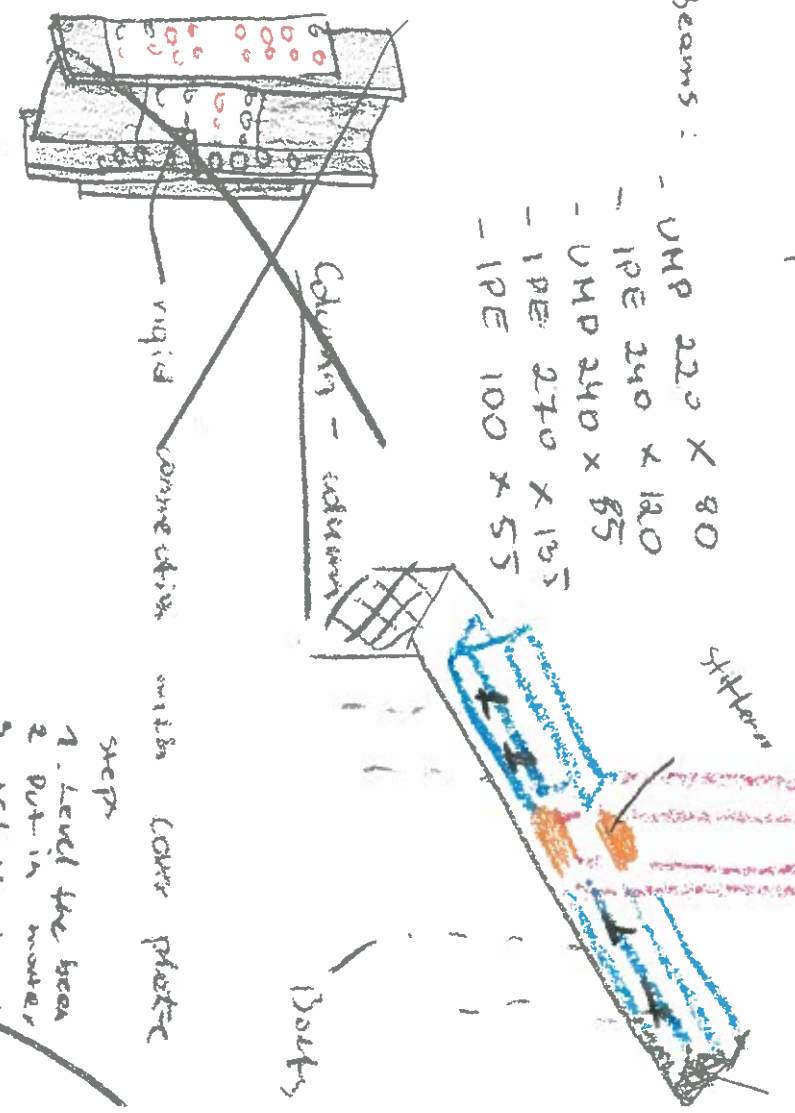 Beams :
- UHP 220 x 80
- IPE 240 x 120
- UHP 240 x 85
- IPE 270 x 135
- IPE 100 x 55
Column - column
rigid connection with cover plate
step
1. Level the beam
2. Put in